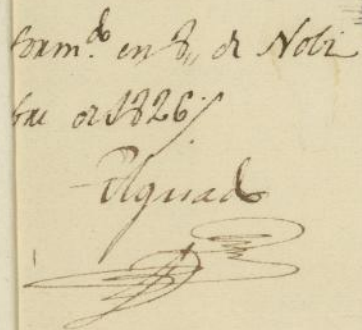 form.do en 8,, de Nobi
bre de 1826,,
Elguad